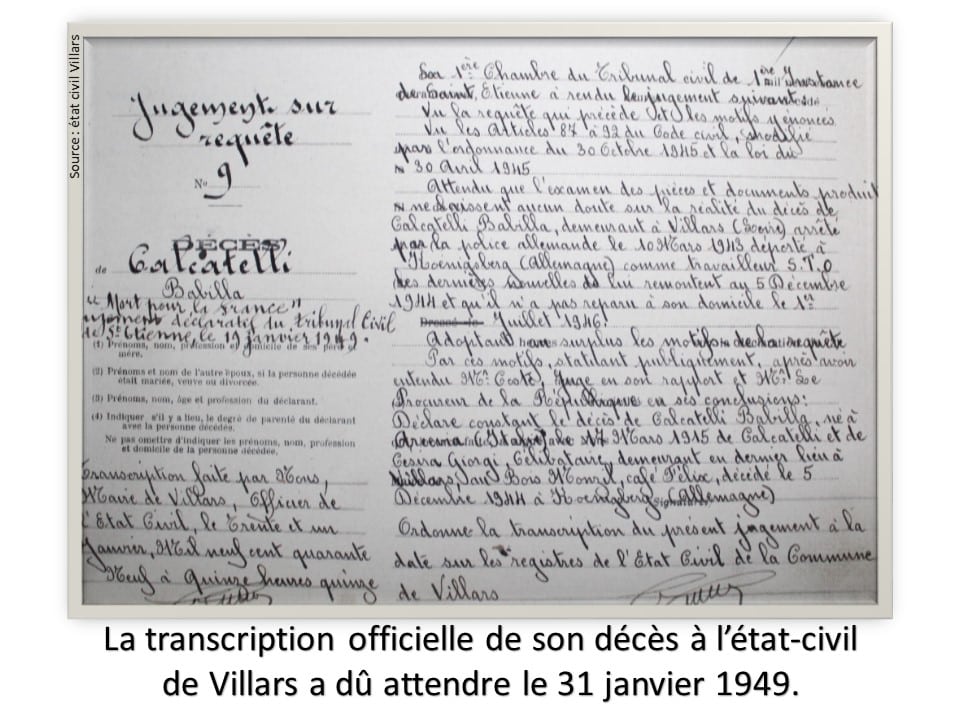 Source : état civil Villars
Jugement sur
requête
N° 9
DÉCÈS
de Calcatelli
Babilla
"Mort pour la France"
jugement déclaratif du Tribunal Civil
de St Etienne, le 19 janvier 1949.
(1) Prénoms, nom, profession et domicile de ses père et
mère.
(2) Prénoms et nom de l'autre époux, si la personne décédée
était mariée, veuve ou divorcée.
(3) Prénoms, nom, âge et profession du déclarant.
(4) Indiquer, s'il y a lieu, le degré de parenté du déclarant
avec la personne décédée.
Ne pas omettre d'indiquer les prénoms, nom, profession
et domicile de la personne décédée.
Transcription faite par Nous,
Maire de Villars, Officier de
l'Etat Civil, le Trente et un
Janvier, Mil neuf cent quarante
Neuf à Quinze heures quinze
La 1ère Chambre du Tribunal civil de 1ère Instance
de Saint Etienne à rendu le jugement suivant:
Vu la requête qui précède et les motifs y énoncés
Vu les Articles 87 à 92 du Code civil, modifié
par l'ordonnance du 30 Octobre 1945 et la loi du
30 Avril 1945.
Attendu que l'examen des pièces et documents produit
ne laissent aucun doute sur la réalité du décès de
Calcatelli Babilla, demeurant à Villars (Loire) arrêté
par la police allemande le 10 Mars 1943 déporté à
Hoenigsberg (Allemagne) comme travailleur S.T.O
les dernières nouvelles de lui remontent au 5 Décembre
1944 et qu'il n'a pas reparu à son domicile le 1er
Juillet 1946.
Adoptant au surplus les motifs de la requête
Par ces motifs, statuant publiquement, après avoir
entendu Mr. Coste, Juge en son rapport et Mr. Le
Procureur de la République en ses conclusions:
Déclare constant le décès de Calcatelli Babilla, né à
(Italie) le 17 Mars 1915 de Calcatelli et de
Cesira Giorgi, Célibataire, demeurant en dernier lieu à
Villars, Bois Monzil, café Félix, décédé le 5
Décembre 1944 à Hoenigsberg (Allemagne)
Ordonne la transcription du présent jugement à la
date sur les registres de l'Etat Civil de la Commune
de Villars
La transcription officielle de son décès à l'état-civil
de Villars a dû attendre le 31 janvier 1949.